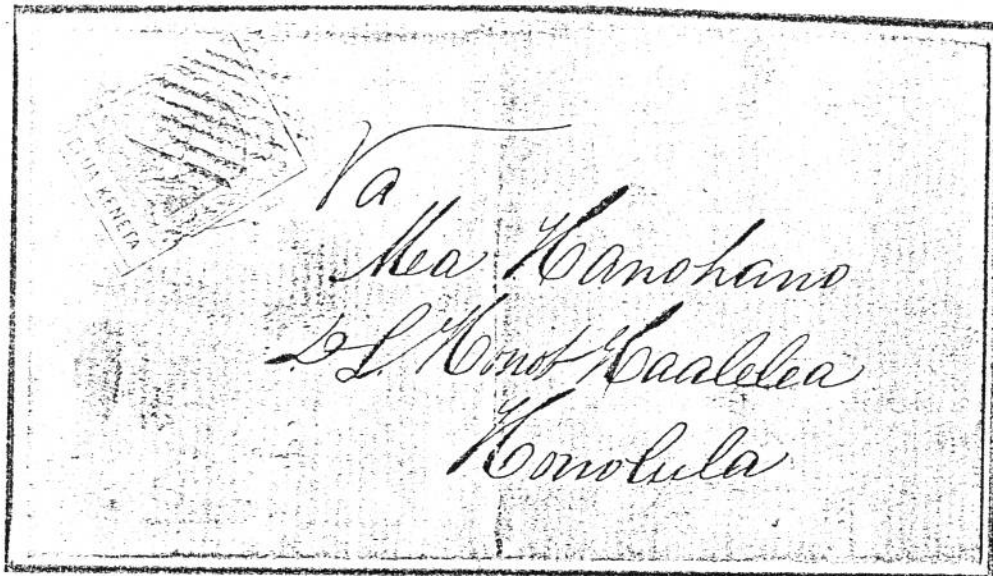 ELUA KENETA
Va
Mea Hanohano
L. Konot Haalelea
Honolula